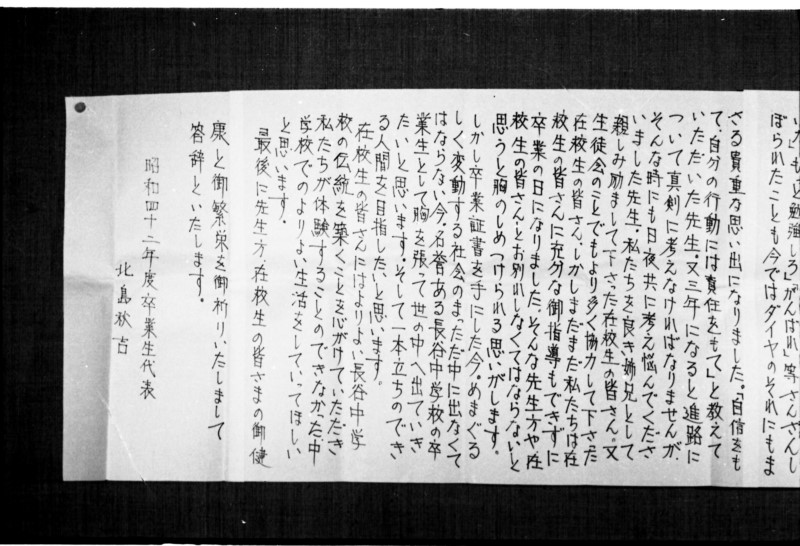 勉強しろ」「がんばれ」等さんざんし
ぼられたことも今ではダイヤのそれにもま
さる貴重な思い出になりました。「自信をも
て、自分の行動には責任をもて」と教えて
いただいた先生。又三年になると進路に
ついて真剣に考えなければなりませんが、
そんな時にも日夜共に考え悩んでくださ
いました先生、私たちを良き姉兄として
親しみ励まして下さった在校生の皆さん。又
生徒会のことでもより多く協力して下さった
在校生の皆さん、しかしまだまだ私たちは在
校生の皆さんに充分な御指導もできずに
卒業の日になりました。そんな先生方や在
校生の皆さんとお別れしなくてはならないと
思うと胸のしめつけられる思いがします。
しかし卒業証書を手にした今、めまぐる
しく変動する社会のまっただ中に出なくて
はならない今、名誉ある長谷中学校の卒
業生として胸を張って世の中へ出ていき
たいと思います。そして一本立ちのでき
る人間を目指したいと思います。
在校生の皆さんにはよりよい長谷中学
校の伝統を築くことを心がけていただき
私たちが体験することのできなかった中
学校でのよりよい生活をしていってほしい
と思います。
最後に先生方、在校生の皆さまの御健
康と御繁栄を御祈りいたしまして
答辞といたします。
昭和四十二年度卒業生代表
北島秋吉